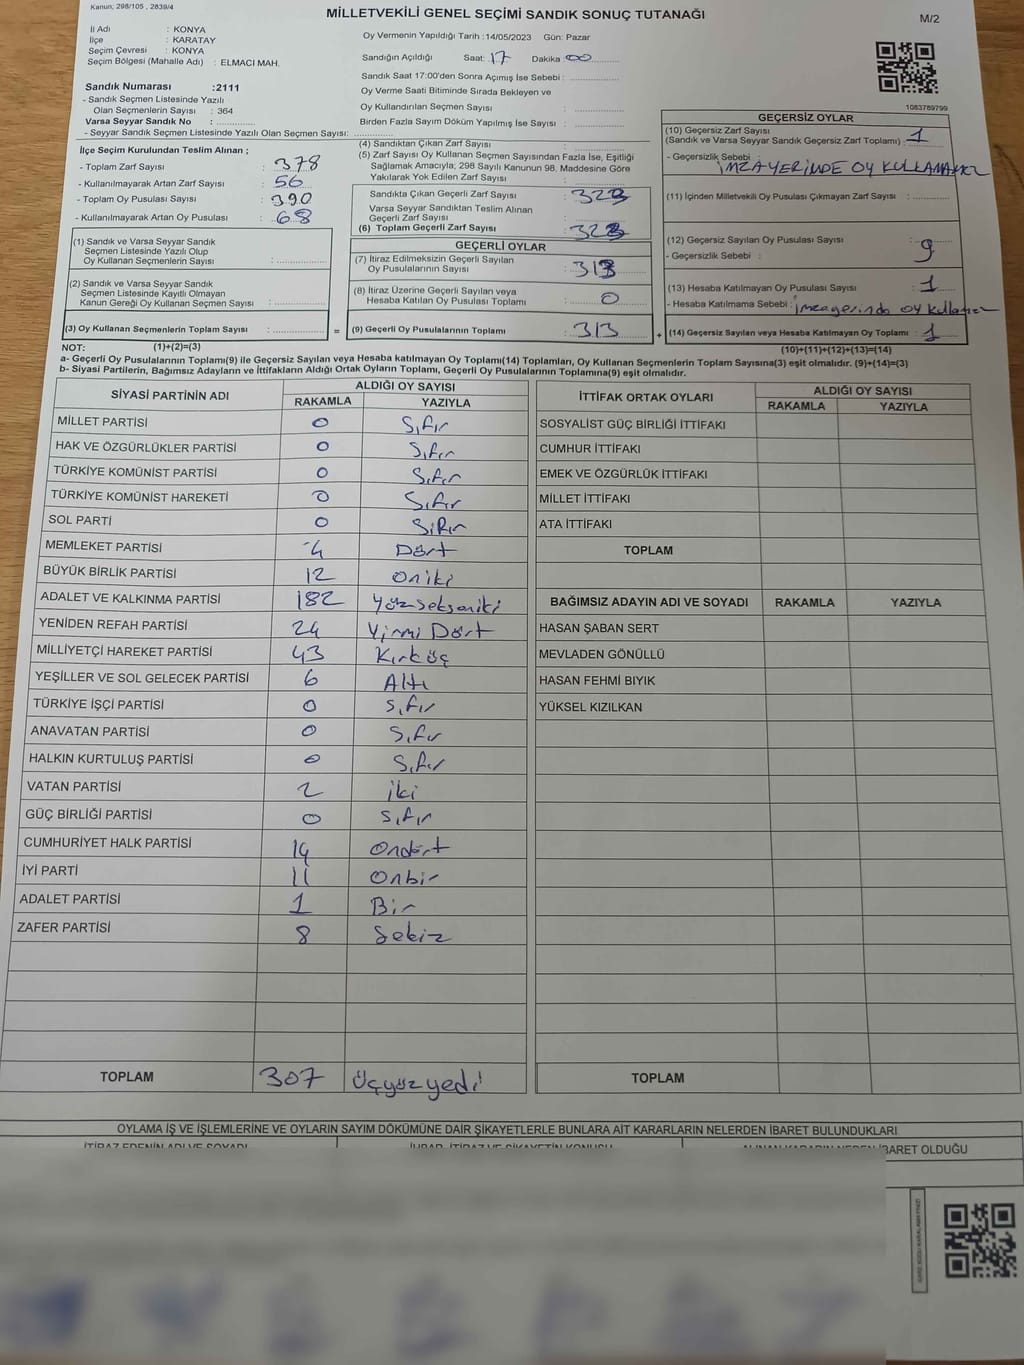 Kanun; 298/105 , 2839/4
MİLLETVEKİLİ GENEL SEÇİMİ SANDIK SONUÇ TUTANAĞI
M/2
İl Adı : KONYA
İlçe : KARATAY
Seçim Çevresi : KONYA
Seçim Bölgesi (Mahalle Adı) : ELMACI MAH.
Sandık Numarası :2111
- Sandık Seçmen Listesinde Yazılı
Olan Seçmenlerin Sayısı : 364
Varsa Seyyar Sandık No :
- Seyyar Sandık Seçmen Listesinde Yazılı Olan Seçmen Sayısı:
Oy Vermenin Yapıldığı Tarih :14/05/2023 Gün: Pazar
Sandığın Açıldığı Saat: 17 Dakika : 00
Sandık Saat 17:00'den Sonra Açımış İse Sebebi :
Oy Verme Saati Bitiminde Sırada Bekleyen ve
Oy Kullandırılan Seçmen Sayısı :
Birden Fazla Sayım Döküm Yapılmış İse Sayısı :
1083789799
İlçe Seçim Kurulundan Teslim Alınan ;
- Toplam Zarf Sayısı : 378
- Kullanılmayarak Artan Zarf Sayısı : 56
- Toplam Oy Pusulası Sayısı : 390
- Kullanılmayarak Artan Oy Pusulası : 68
(1) Sandık ve Varsa Seyyar Sandık
Seçmen Listesinde Yazılı Olup
Oy Kullanan Seçmenlerin Sayısı :
(2) Sandık ve Varsa Seyyar Sandık
Seçmen Listesinde Kayıtlı Olmayan
Kanun Gereği Oy Kullanan Seçmen Sayısı :
(3) Oy Kullanan Seçmenlerin Toplam Sayısı : =
(4) Sandıktan Çıkan Zarf Sayısı :
(5) Zarf Sayısı Oy Kullanan Seçmen Sayısından Fazla İse, Eşitliği
Sağlamak Amacıyla; 298 Sayılı Kanunun 98. Maddesine Göre
Yakılarak Yok Edilen Zarf Sayısı :
Sandıkta Çıkan Geçerli Zarf Sayısı : 323
Varsa Seyyar Sandıktan Teslim Alınan
Geçerli Zarf Sayısı :
(6) Toplam Geçerli Zarf Sayısı : 323
GEÇERLİ OYLAR
(7) İtiraz Edilmeksizin Geçerli Sayılan
Oy Pusulalarının Sayısı : 313
(8) İtiraz Üzerine Geçerli Sayılan veya
Hesaba Katılan Oy Pusulası Toplamı : 0
(9) Geçerli Oy Pusulalarının Toplamı : 313 +
GEÇERSİZ OYLAR
(10) Geçersiz Zarf Sayısı
(Sandık ve Varsa Seyyar Sandık Geçersiz Zarf Toplamı) : 1
- Geçersizlik Sebebi :
İMZA YERİNDE OY KULLANAMAZ
(11) İçinden Milletvekili Oy Pusulası Çıkmayan Zarf Sayısı :
(12) Geçersiz Sayılan Oy Pusulası Sayısı : 9
- Geçersizlik Sebebi :
(13) Hesaba Katılmayan Oy Pusulası Sayısı : 1
- Hesaba Katılmama Sebebi : imza yerinde oy kullanmaz
(14) Geçersiz Sayılan veya Hesaba Katılmayan Oy Pusulası Toplamı : 1
NOT: (1)+(2)=(3) (10)+(11)+(12)+(13)=(14)
a- Geçerli Oy Pusulalarının Toplamı(9) ile Geçersiz Sayılan veya Hesaba katılmayan Oy Toplamı(14) Toplamları, Oy Kullanan Seçmenlerin Toplam Sayısına(3) eşit olmalıdır. (9)+(14)=(3)
b- Siyasi Partilerin, Bağımsız Adayların ve İttifakların Aldığı Ortak Oyların Toplamı, Geçerli Oy Pusulalarının Toplamına(9) eşit olmalıdır.
SİYASİ PARTİNİN ADI ALDIĞI OY SAYISI
RAKAMLA YAZIYLA
MİLLET PARTİSİ 0 Sıfır
HAK VE ÖZGÜRLÜKLER PARTİSİ 0 Sıfır
TÜRKİYE KOMÜNİST PARTİSİ 0 Sıfır
TÜRKİYE KOMÜNİST HAREKETİ 0 Sıfır
SOL PARTİ 0 Sıfır
MEMLEKET PARTİSİ 4 Dört
BÜYÜK BİRLİK PARTİSİ 12 oniki
ADALET VE KALKINMA PARTİSİ 182 Yüzsekseniki
YENİDEN REFAH PARTİSİ 24 Yirmi Dört
MİLLİYETÇİ HAREKET PARTİSİ 43 Kırküç
YEŞİLLER VE SOL GELECEK PARTİSİ 6 Altı
TÜRKİYE İŞÇİ PARTİSİ 0 Sıfır
ANAVATAN PARTİSİ 0 Sıfır
HALKIN KURTULUŞ PARTİSİ 0 Sıfır
VATAN PARTİSİ 2 iki
GÜÇ BİRLİĞİ PARTİSİ 0 Sıfır
CUMHURİYET HALK PARTİSİ 14 Ondört
İYİ PARTİ 11 Onbir
ADALET PARTİSİ 1 Bir
ZAFER PARTİSİ 8 Sekiz
TOPLAM 307 Üçyüzyedi
İTTİFAK ORTAK OYLARI ALDIĞI OY SAYISI
RAKAMLA YAZIYLA
SOSYALİST GÜÇ BİRLİĞİ İTTİFAKI
CUMHUR İTTİFAKI
EMEK VE ÖZGÜRLÜK İTTİFAKI
MİLLET İTTİFAKI
ATA İTTİFAKI
TOPLAM
BAĞIMSIZ ADAYIN ADI VE SOYADI RAKAMLA YAZIYLA
HASAN ŞABAN SERT
MEVLADEN GÖNÜLLÜ
HASAN FEHMİ BIYIK
YÜKSEL KIZILKAN
TOPLAM
OYLAMA İŞ VE İŞLEMLERİNE VE OYLARIN SAYIM DÖKÜMÜNE DAİR ŞİKAYETLERLE BUNLARA AİT KARARLARIN NELERDEN İBARET BULUNDUKLARI
İTİRAZ EDENİN ADI VE SOYADI
İBARET OLDUĞU